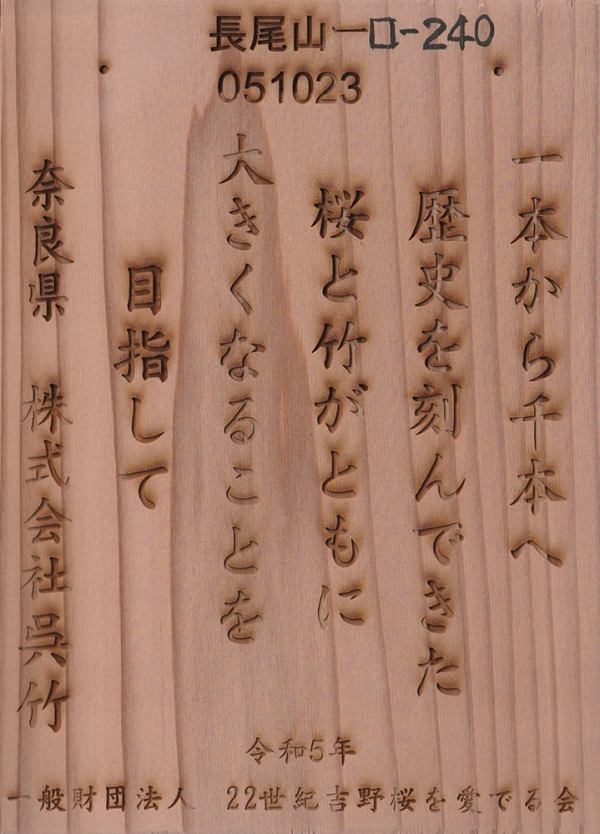 長尾山一ロ-240
051023
一本から千本へ
歴史を刻んできた
桜と竹がともに
大きくなることを
目指して
奈良県 株式会社呉竹
令和5年
一般財団法人 22世紀吉野桜を愛でる会